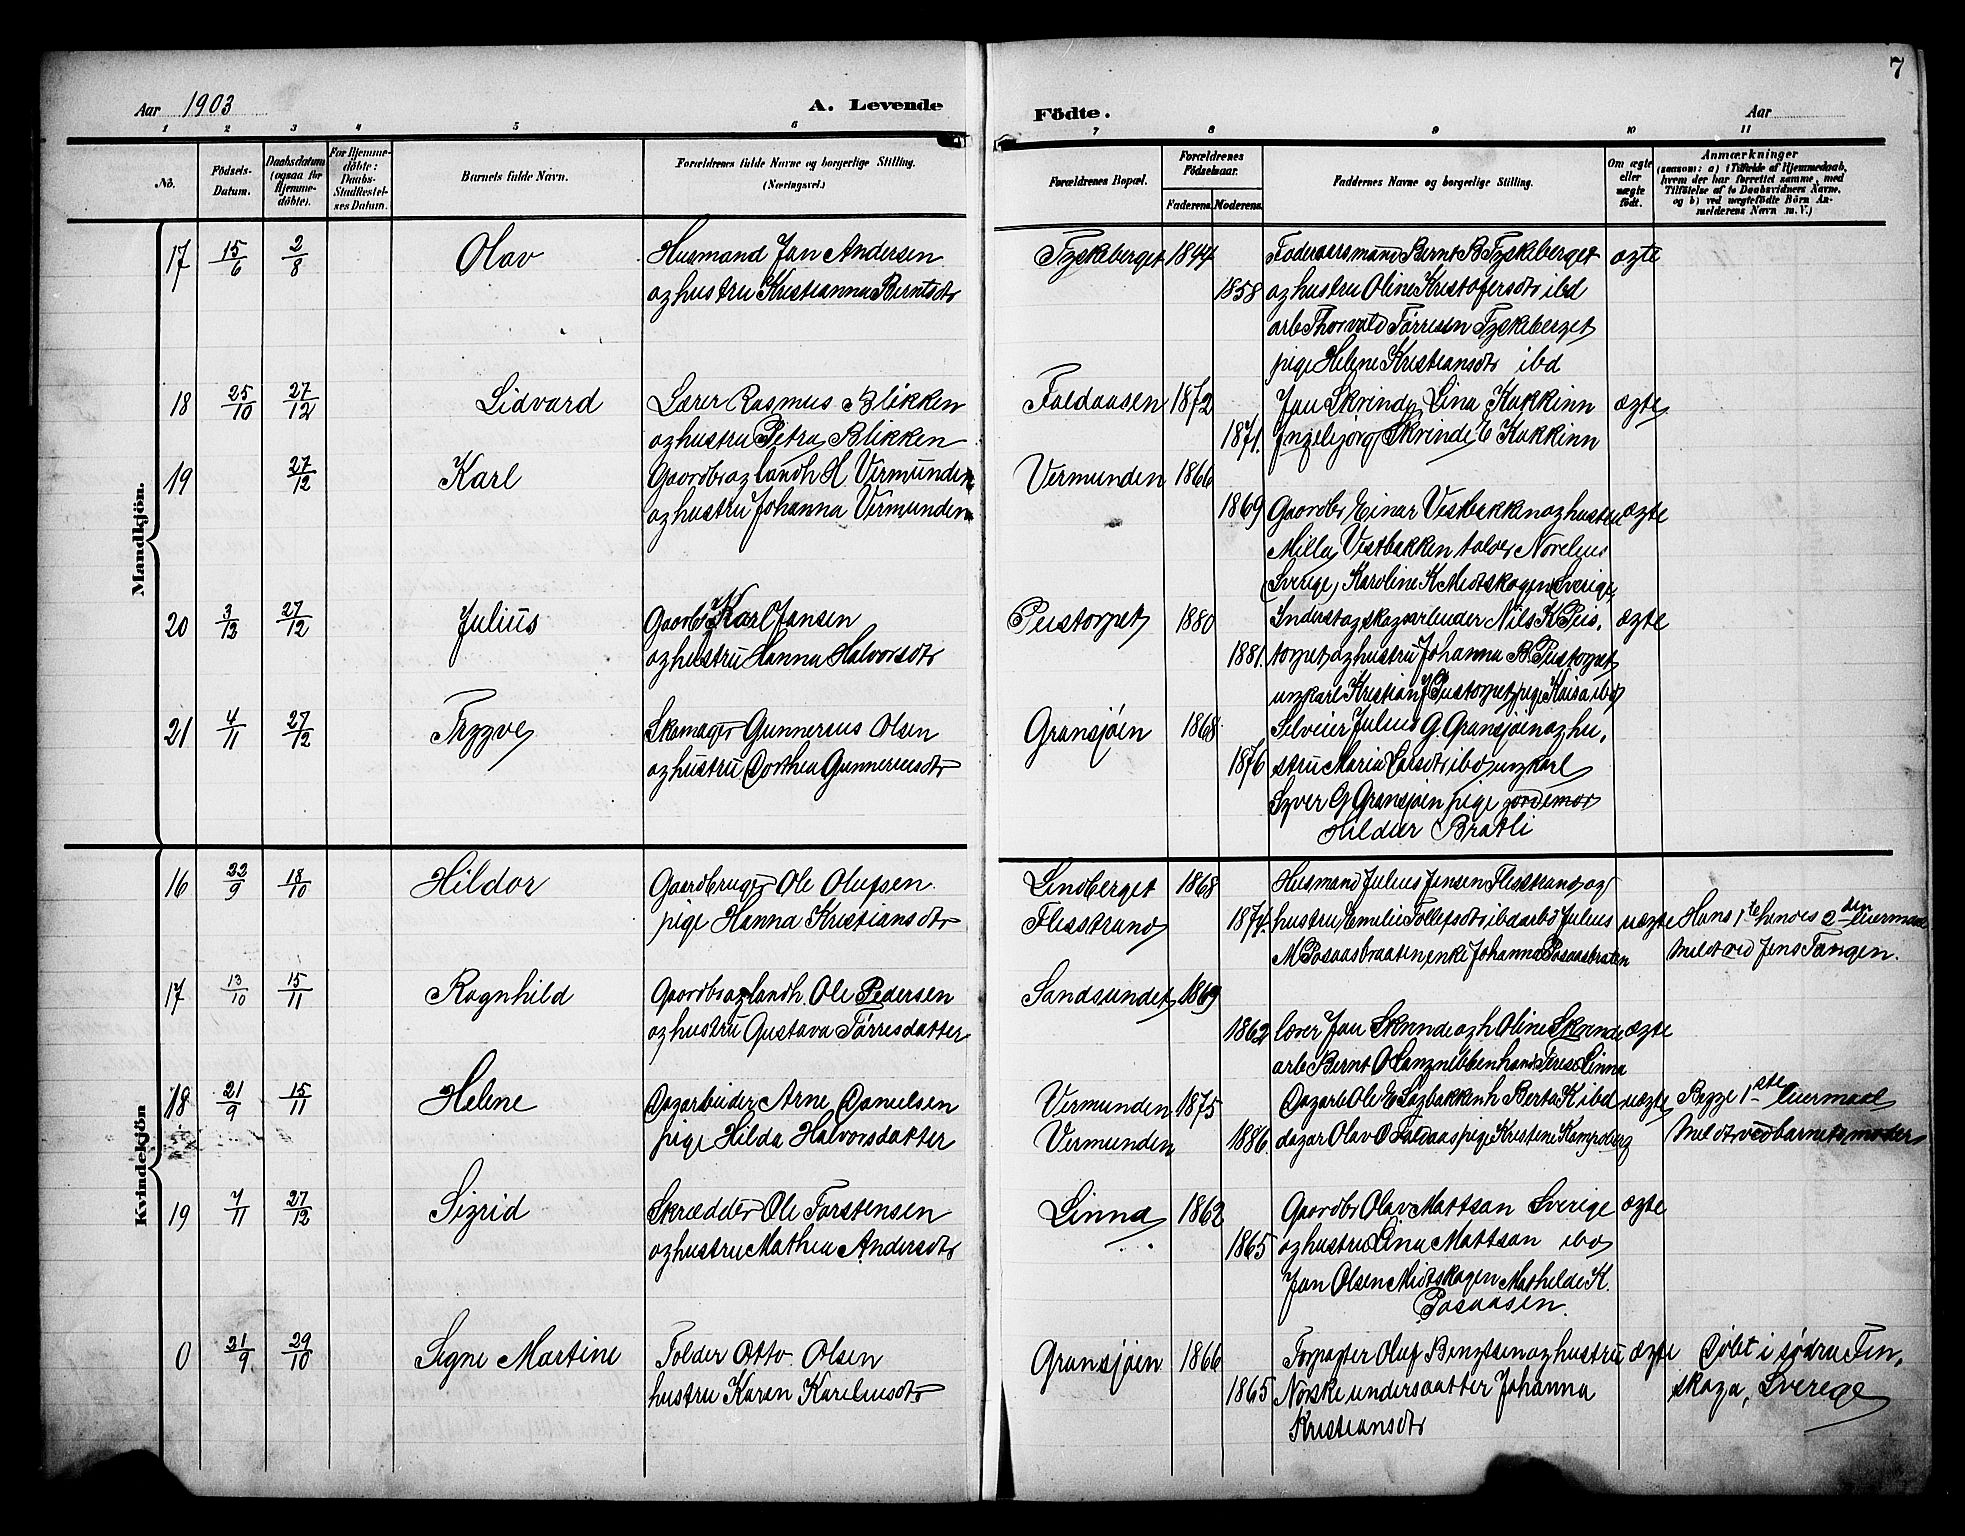 7
Aar 1903 A. Levende Födte. Aar
1 2 3 4 5 6 7 8 9 10 11
No. Födsels-Datum. Daabsdatum (ogsaa for Hjemme-döbte). For Hjemme-döbte: Daabs-Stadfæstelses Datum. Barnets fulde Navn. Forældrenes fulde Navne og borgerlige Stilling. (Næringsvei.) Forældrenes Bopæl. Forældrenes Födselsaar. Faderens. Moderens. Faddernes Navne og borgerlige Stilling. Om ægte eller uægte födt. Anmærkninger (saasom: a) i Tilfælde af Hjemmedaab, hvem der har forrettet samme, med Tilföielse af to Daabsvidners Navne, og b) ved uægtefödte Börn Anmelderens Navn m. V.)
Mandkjön.
17 15/6 2/8 Olav Husmand Jan Andersen Tyskeberget 1844 Foderaarsmand Bernt B Tyskeberget ægte
og hustru Kristianna Berntsdtr 1858 og hustru Oline Kristofersdtr ibd
arb Thorvald Tørresen Tyskeberget
pige Helene Kristiansdtr ibd
18 25/10 27/12 Lidvard Lærer Rasmus Blikken Faldaasen 1872 Jan Skrinde, Lina Kukkinn ægte
og hustru Petra Blikken 1871. Ingebjørg Skrinde E Kukkinn
19 27/12 Karl Gaardbr og landh H Vermunden Vermunden 1866
og hustru Johanna Vermunden 1869 Gaardbr Einar Vestbakken og hustru ægte
Milla Vestbakken Norelius
Sverige, Karoline K Midtskogen Sverige
20 3/12 27/12 Julius Gaardbr Karl Jansen Peistorpet 1880 Inderst og skogarbeider Nils K Peis. ægte
og hustru Hanna Halvorsdtr 1881. torpet og hustru Johanna B. Peistorpet
ungkarl Kristian J Peistorpet pige Kaisa ibd
21 4/11 27/12 Trygve Skomager Gunnerius Olsen Gransjøen 1868 Selveier Julius G Gransjøen og hu.
og hustru Dorthea Gunneriusdtr 1876 stru Maria Larsdtr ibd ungkarl
Syver G Gransjøen pige jordemor
Hildur Bratli
Kvindekjön
16 22/9 18/10 Hildor Gaardbruger Ole Olufsen. Lindberget 1868 Husmand Julius Jensen Flisstrand og
pige Hanna Kristiansdtr Flisstrand 1874. hustru Emelie Tollefsdtr ibd arb Julius uægte Hans 1ste hendes 2den leiermaal
M Posaasbraaten, enke Johanna Posaasbraten Meldt ved Jens Tangen.
17 13/10 15/11 Ragnhild Gaardbr og landh. Ole Pedersen Sandsundet 1869
og hustru Gustava Tørresdatter 1862 lærer Jan Skrinde og h Oline Skrinde ægte
arb Bernt O Linna
18 21/9 15/11 Helene Dagarbeider Arne Danielsen Vermunden 1875 Dagarb Ole E Løgbakken h Berta K ibd uægte Begge 1ste leiermaal
pige Hilda Halvorsdatter Vermunden 1886. dagar Olav O Faldaas pige Kristine Kampesberg Meldt ved barnets moder
19 7/11 27/12 Sigrid Skrædder Ole Torstensen Linna 1862 Gaardbr Olav Mattsan Sverige ægte
og hustru Mathea Andersdtr 1865 og hustru Lina Mattsan ibd
Jan Olsen Midtskogen Mathilde K.
Posaasen.
0 21/9 29/10 Signe Martine Tolder Otto Olsen Gransjøen 1866 Forpagter Oluf Bengtsen og hustru ægte Døbt i södra Fin.
hustru Karen Kareliusdtr 1865 Norske undersaatter Johanna skoga, Sverige
Kristiansdtr